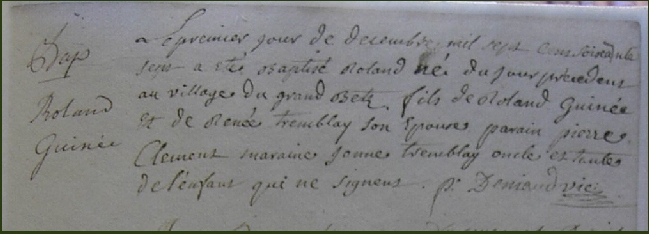 Bap
Roland
Guinée
Le premier jour de decembre mil sept cens soixante
sept a eté Baptisé Roland né du jour précedent
au village du grand Betz. fils de Roland Guinée
et de Renée tremblay son Epouse parain pierre
Clement maraine Jenne tremblay oncle et tante
de l'enfant qui ne signent. p. Deniaud vic